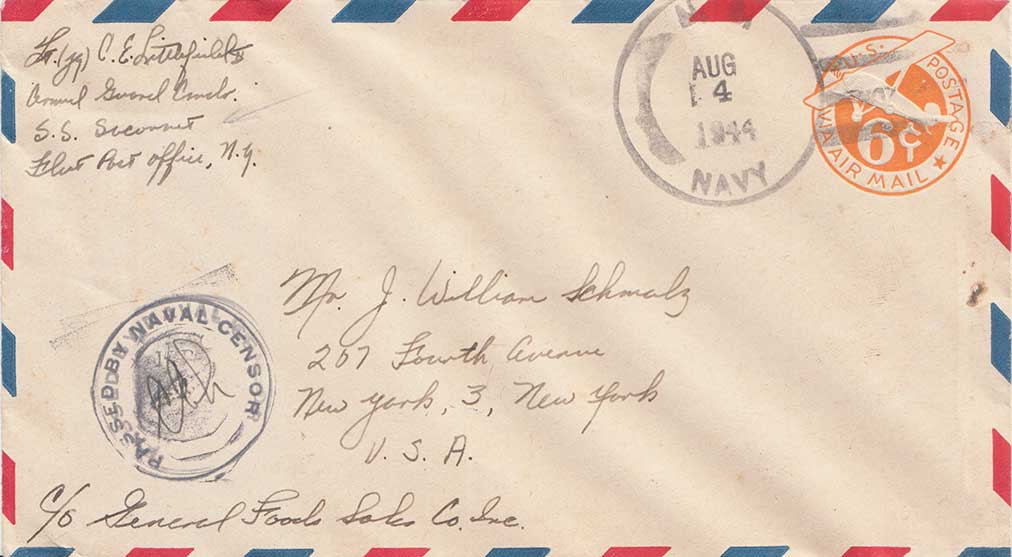 Lt. (jg) C. E. Littlefield
Armed Guard Comdr.
S.S. Seconnet
Fleet Post Office, N.Y.
AUG
4
1944
NAVY
U.S. POSTAGE
6¢
VIA AIR MAIL
PASSED BY NAVAL CENSOR
Mr. J. William Schmalz
207 Fourth Avenue
New York, 3, New York
U. S. A.
C/o General Foods Sales Co. Inc.